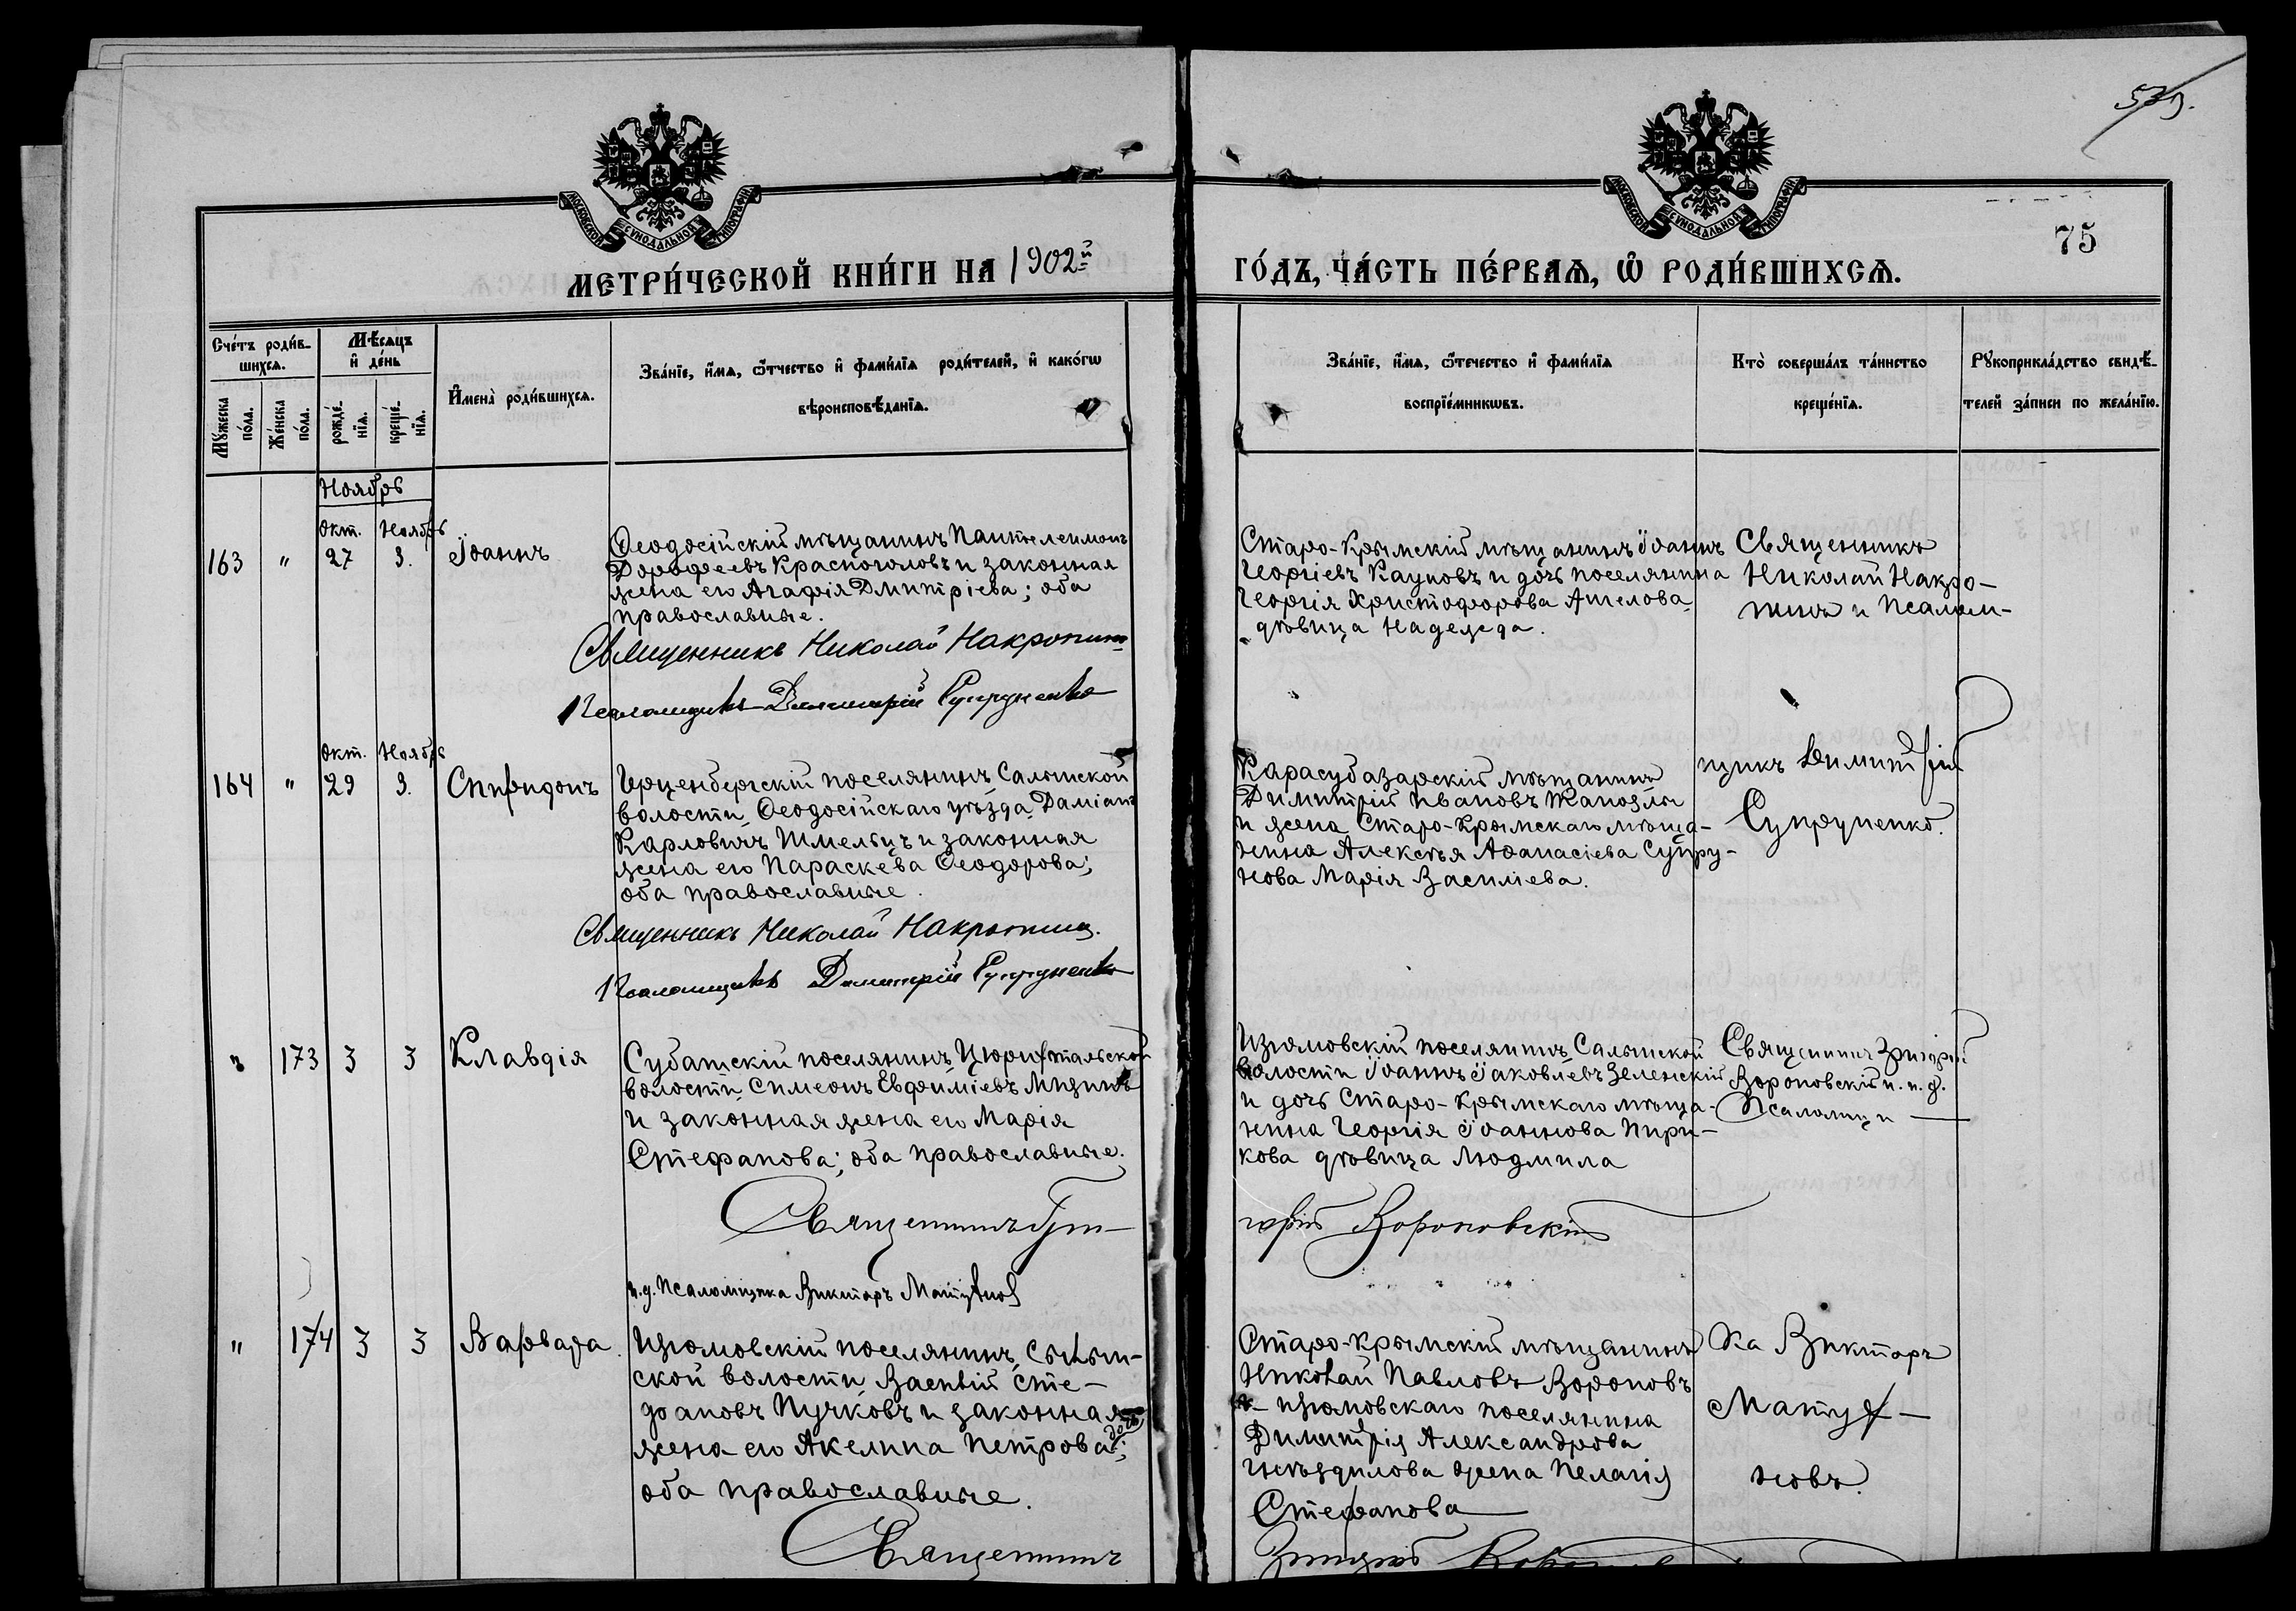 539.
МОСКОВСКОЙ СѴНОДАЛЬНОЙ ТИПОГРАФІИ
МОСКОВСКОЙ СѴНОДАЛЬНОЙ ТИПОГРАФІИ
75
МЕТРИ́ЧЕСКОЙ КНИ́ГИ НА 1902й
ГО́ДЪ, ЧА́СТЬ ПЕ́РВАѦ, Ѡ҆ РОДИ́ВШИХСѦ.
Сче́тъ роди́в-
шихсѧ.
Мѣ́сѧцъ
и҆ де́нь
Мꙋ́жеска
по́ла.
Же́нска
по́ла.
рожде́-
нїѧ.
креще́-
нїѧ.
И҆мена̀ роди́вшихсѧ.
Зва́нїе, и҆́мѧ, ѻ҆́тчество и҆ фами́лїѧ роди́телей, и҆ како́гѡ
вѣроисповѣ́данїѧ.
Зва́нїе, и҆́мѧ, ѻ҆́течество и҆ фами́лїѧ
воспрїе́мникѡвъ.
Кто̀ соверша́лъ та́инство
креще́нїѧ.
Рꙋкоприкла́дство свидѣ́-
телей за́писи по жела́нїю.
Ноябрь
Окт. Ноябрь
163 " 27 3. Іоаннъ
Ѳеодосійскій мѣщанинъ Пантелеимонъ
Дороѳеевъ Красноголовъ и законная
жена его Агафія Дмитріева; оба
православные.
Священникъ Николай Накропинъ
Псаломщикъ Димитрій Супруненко
Старо-Крымскій мѣщанинъ Іоаннъ
Георгіевъ Кауновъ и дочь поселянина
Георгія Христофорова Ангелова
дѣвица Надежда.
Священникъ
Николай Накро-
пинъ и Псалом-
Окт. Ноябрь
164 " 29 3. Спиридонъ
Герценбергскій поселянинъ, Салынской
волости, Ѳеодосійскаго уѣзда, Даміанъ
Карловичъ Шмельцъ и законная
жена его Параскева Ѳеодорова;
оба православные.
Священникъ Николай Накропинъ.
Псаломщикъ Димитрій Супруненко
Карасубазарскій мѣщанинъ
Димитрій Ивановъ Капозлы
и жена Старо-Крымскаго мѣща-
нина Алексѣя Аѳанасіева Супру-
нова Марія Василіева.
щикъ Димитрій
Супруненко.
" 173 3 3 Клавдія
Субатскій поселянинъ, Цюрихтальской
волости, Симеонъ Евфиміевъ Мицинъ
и законная жена его Марія
Стефанова; оба православные.
Священникъ Гри-
и.д. Псаломщика Викторъ Матуховъ
Изюмовскій поселянинъ, Салынской
волости Іоаннъ Іаковлевъ Зеленскій
и дочь Старо-Крымскаго мѣща-
нина Георгія Іоаннова Пири-
кова дѣвица Людмила
горій Вороновскій
Священникъ Григорій
Вороновскій и. и. д.
Псаломщи-
" 174 3 3 Варвара.
Изюмовскій поселянинъ, Салын-
ской волости, Василій Сте-
фановъ Пучковъ и законная
жена его Акелина Петрова;
оба православные.
Священникъ
Старо-Крымскій мѣщанинъ
Николай Павловъ Вороновъ
и изюмовскаго поселянина
Димитрія Александрова
Гнѣздилова жена Пелагія
Стефанова
Григорій
ка Викторъ
Матух-
новъ.